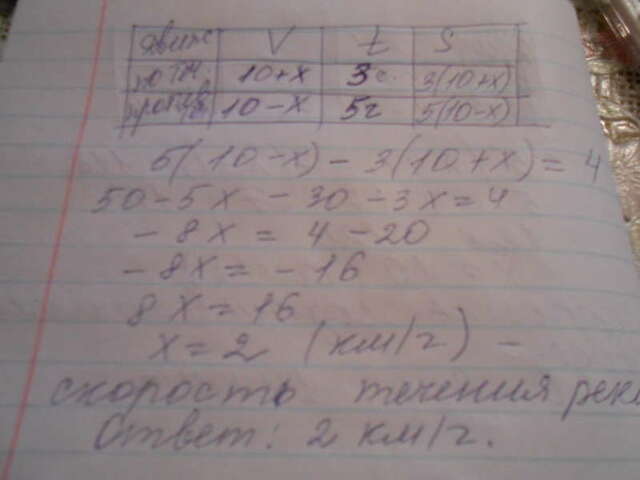 движ. V t S
по теч. 10+x 3г. 3(10+x)
против теч. 10-x 5г 5(10-x)
5(10-x)-3(10+x)=4
50-5x-30-3x=4
-8x=4-20
-8x=-16
8x=16
x=2 (км/г) -
скорость течения реки
Ответ: 2 км/г.